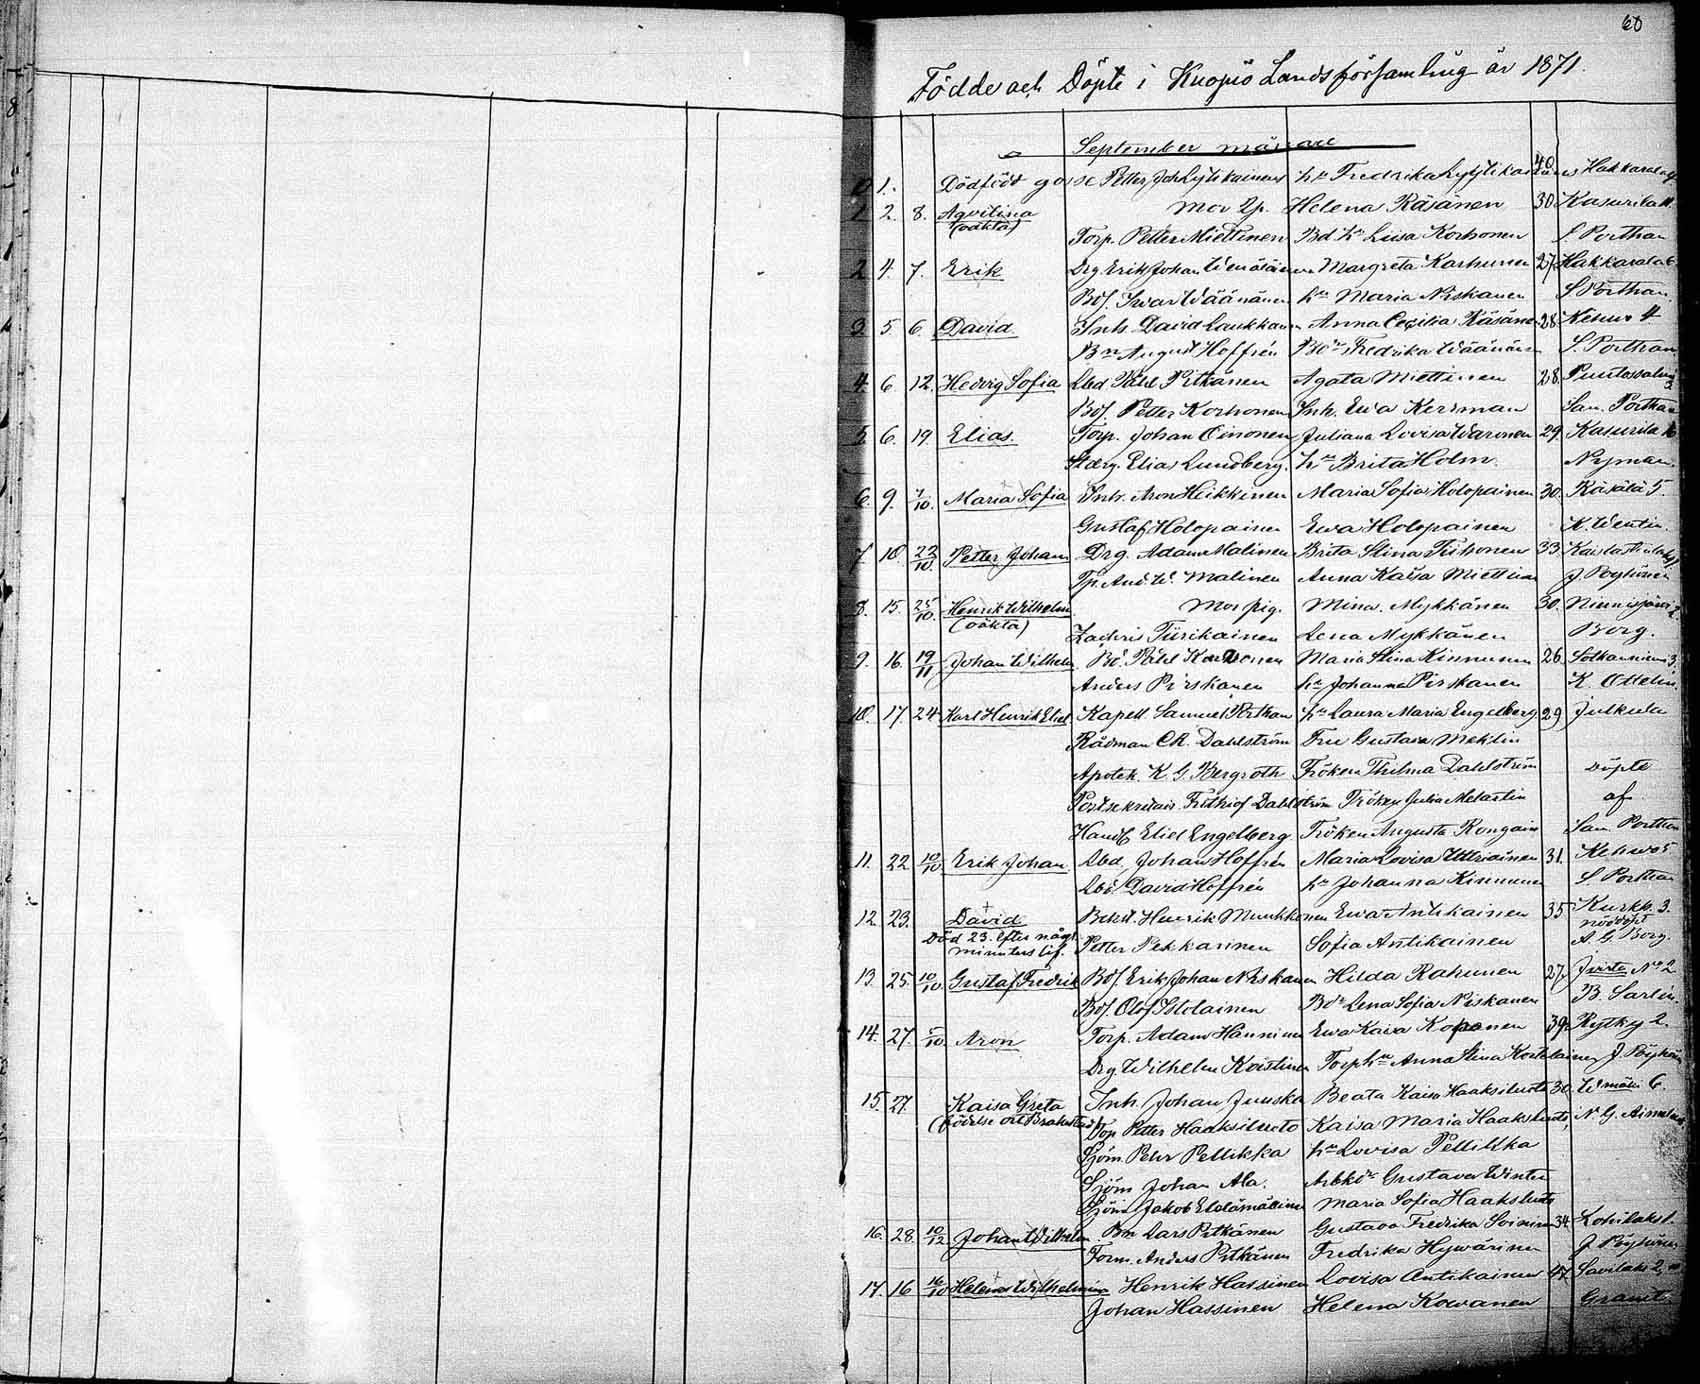 60
Födde och Döpte i Kuopio Landsförsamling år 1871.
September månad
0 1. Dödfödd gosse Petter Joh Lyytikainens hn Fredrika Lyytikainen 40 Hakkarala
1 2. 8. Agvilina mor Pp. Helena Räsänen 30 Kasurila 11.
(oäkta) Torp. Petter Miettinen Bd. hn Liisa Korhonen S. Porthan
2 4. 7. Erik Drg Erik Johan Wenäläinen Margreta Karhunen 27 Hakkarala 6.
Bdf. Iwar Wäänänen hn Maria Niskanen S Porthan
3. 5 6. David Inh. David Laukkanen Anna Cecilia Räsänen 28 Kehwo 4
Bn August Hoffrén Bdr Fredrika Wäänänen S. Porthan
4. 6. 12. Hedvig Sofia Lbd Påhl Pitkänen Agata Miettinen 28. Puutosalmi 3.
Bdf. Petter Korhonen Inh. Ewa Kerman Sam. Porthan
5. 6. 19. Elias. Torp. Johan Oinonen Juliana Lovisa Waronen 29. Kasurila 16
Elias Lundberg. hn Brita Holm. Nyman.
6. 9. 1/10. Maria Sofia Inh. Aron Heikkinen Maria Sofia Holopainen 30. Räsälä 5.
Gustaf Holopainen Ewa Holopainen K. Wentin.
7. 10. 22/10. Petter Johan Drg. Adam Malinen Brita Stina Tiihonen 33.
Tp. And. W. Malinen Anna Kaisa Miettinen J. Pöyhönen
8. 15. 25/10. Henrik Wilhelm Mor pig. Mina. Mykkänen 30. Nunisjärvi 2
(oäkta) Zachris Tiirikainen Lena Mykkänen Borg.
9. 16. 19/11 Johan Wilhelm Bd. Påhl Korhonen Maria Stina Kinnunen 26. Sotkanniemi 3.
Anders Pirskanen hn Johanna Pirskanen K. Ottelin.
10. 17. 24 Karl Henrik Eliel Kapell. Samuel Porthan hn Laura Maria Engelberg 29) Julkula
Rådman CR. Dahlström Fru Gustava Meklin
Apotek. K. G. Bergroth Fröken Thilma Dahlström döpte
Fritiof Dahlström Fröken Julia Melartin af
Handl Eliel Engelberg Fröken Augusta Rongain Sam Porthan
11. 22. 10/10 Erik Johan Lbd. Johan Hoffrén Maria Lovisa Uttriainen 31. Kehwo 5
Lbd. David Hoffrén hn Johanna Kinnunen S. Porthan
12. 23. David Henrik Munkkonen Ewa Antikainen 35 Kurkh. 3.
Död 23. efter någr minuters lif. Petter Pekkarinen Sofia Antikainen nöddöpt A. G. Borg.
13. 25. 10/10. Gustaf Fredrik Bdf. Erik Johan Niskanen Hilda Rahunen 27. No 2
Bdf. Olof Holainen Bdr Lena Sofia Niskanen B. Sarlin.
14. 27. /10 Aron Torp. Adam Hanninen Ewa Kaisa Koponen 39. Rytky 2.
Drg. Wilhelm Koistinen Torphn Anna Stina Kortelainen J. Pöyhönen
15. 27. Kaisa Greta Inh. Johan Juuska Beata Kaisa Haaksiluoto 30. 6.
(födelse ort Brahestad) Petter Haaksiluoto Kaisa Maria Haaksiluoto N. G.
Sjöm. Pehr Pellikka hn Lovisa Pellikka
Sjöm Johan Ala. Gustava Winter
Sjöm Jakob Maria Sofia Haaksiluoto
16. 28. 10/12 Johan Wilhelm Bn Lars Pitkänen Gustava Fredrika Soininen 34. Lohilaks 1.
Torn. Anders Pitkänen Fredrika Hywärinen J. Pöyhönen
17. 16 16/10 Helena Wilhelmina Henrik Hassinen Lovisa Antikainen 47 Savilaks 2,
Johan Hassinen Helena Kowanen Granit